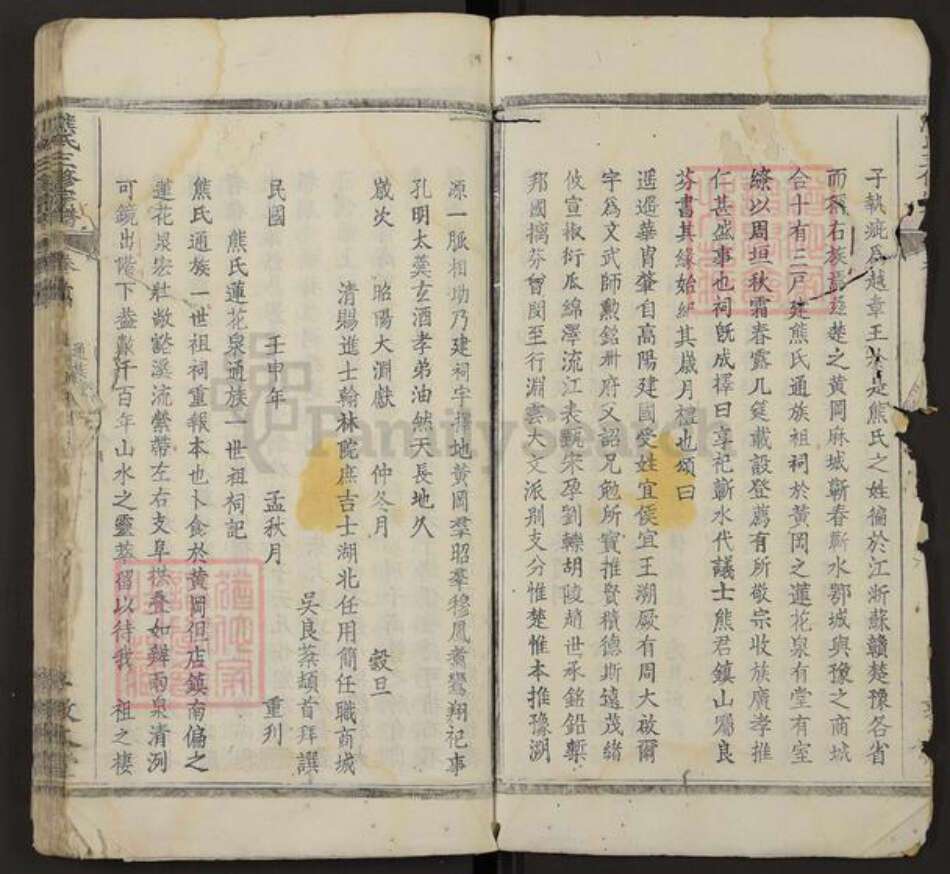 子執疵爲越章王於是熊氏之姓徧於江浙蘇贛楚豫各省
而稱右族焉茲楚之黃岡麻城蘄春蘄水鄂城與豫之商城
合十有三戶建熊氏通族祖祠於黃岡之蓮花泉有堂有室
繚以周垣秋霜春露几筵載設登薦有所敬宗收族廣孝推
仁甚盛事也祠旣成擇日享祀蘄水代議士熊君鎮山屬良
棻書其緣始紀其歲月禮也頌曰
遥遥華冑肇自高陽建國受姓宜侯宜王溯厥有周大啟爾
宇爲文武師勲銘卌府又詔兄勉所寶推賢積德斯遠茂緒
攸宣椒衍瓜綿澤流江表甄宋孕劉轢胡陵趙世承銘鉛槧
邦國摛芬曾閔至行淵雲大文派別支分惟楚惟本推豫溯
源一脈相坳乃建祠宇擇地黃岡羣昭羣穆鳳翥鸞翔祀事
孔明太羹玄酒孝弟油然天長地久
歲次 昭陽大淵獻 仲冬月 穀旦
清賜進士翰林院庶吉士湖北任用簡任職商城
吳良棻頓首拜譔
民國 壬申年 孟秋月 重刋
熊氏蓮花泉通族一世祖祠記
熊氏通族一世祖祠重報本也卜食於黃岡但店鎮南偏之
蓮花泉宏壯敞豁溪流縈帶左右支阜拱叠如辮兩泉清洌
可鏡出階下葢數千百年山水之靈萃留以待我 祖之棲
熊氏三修宗譜